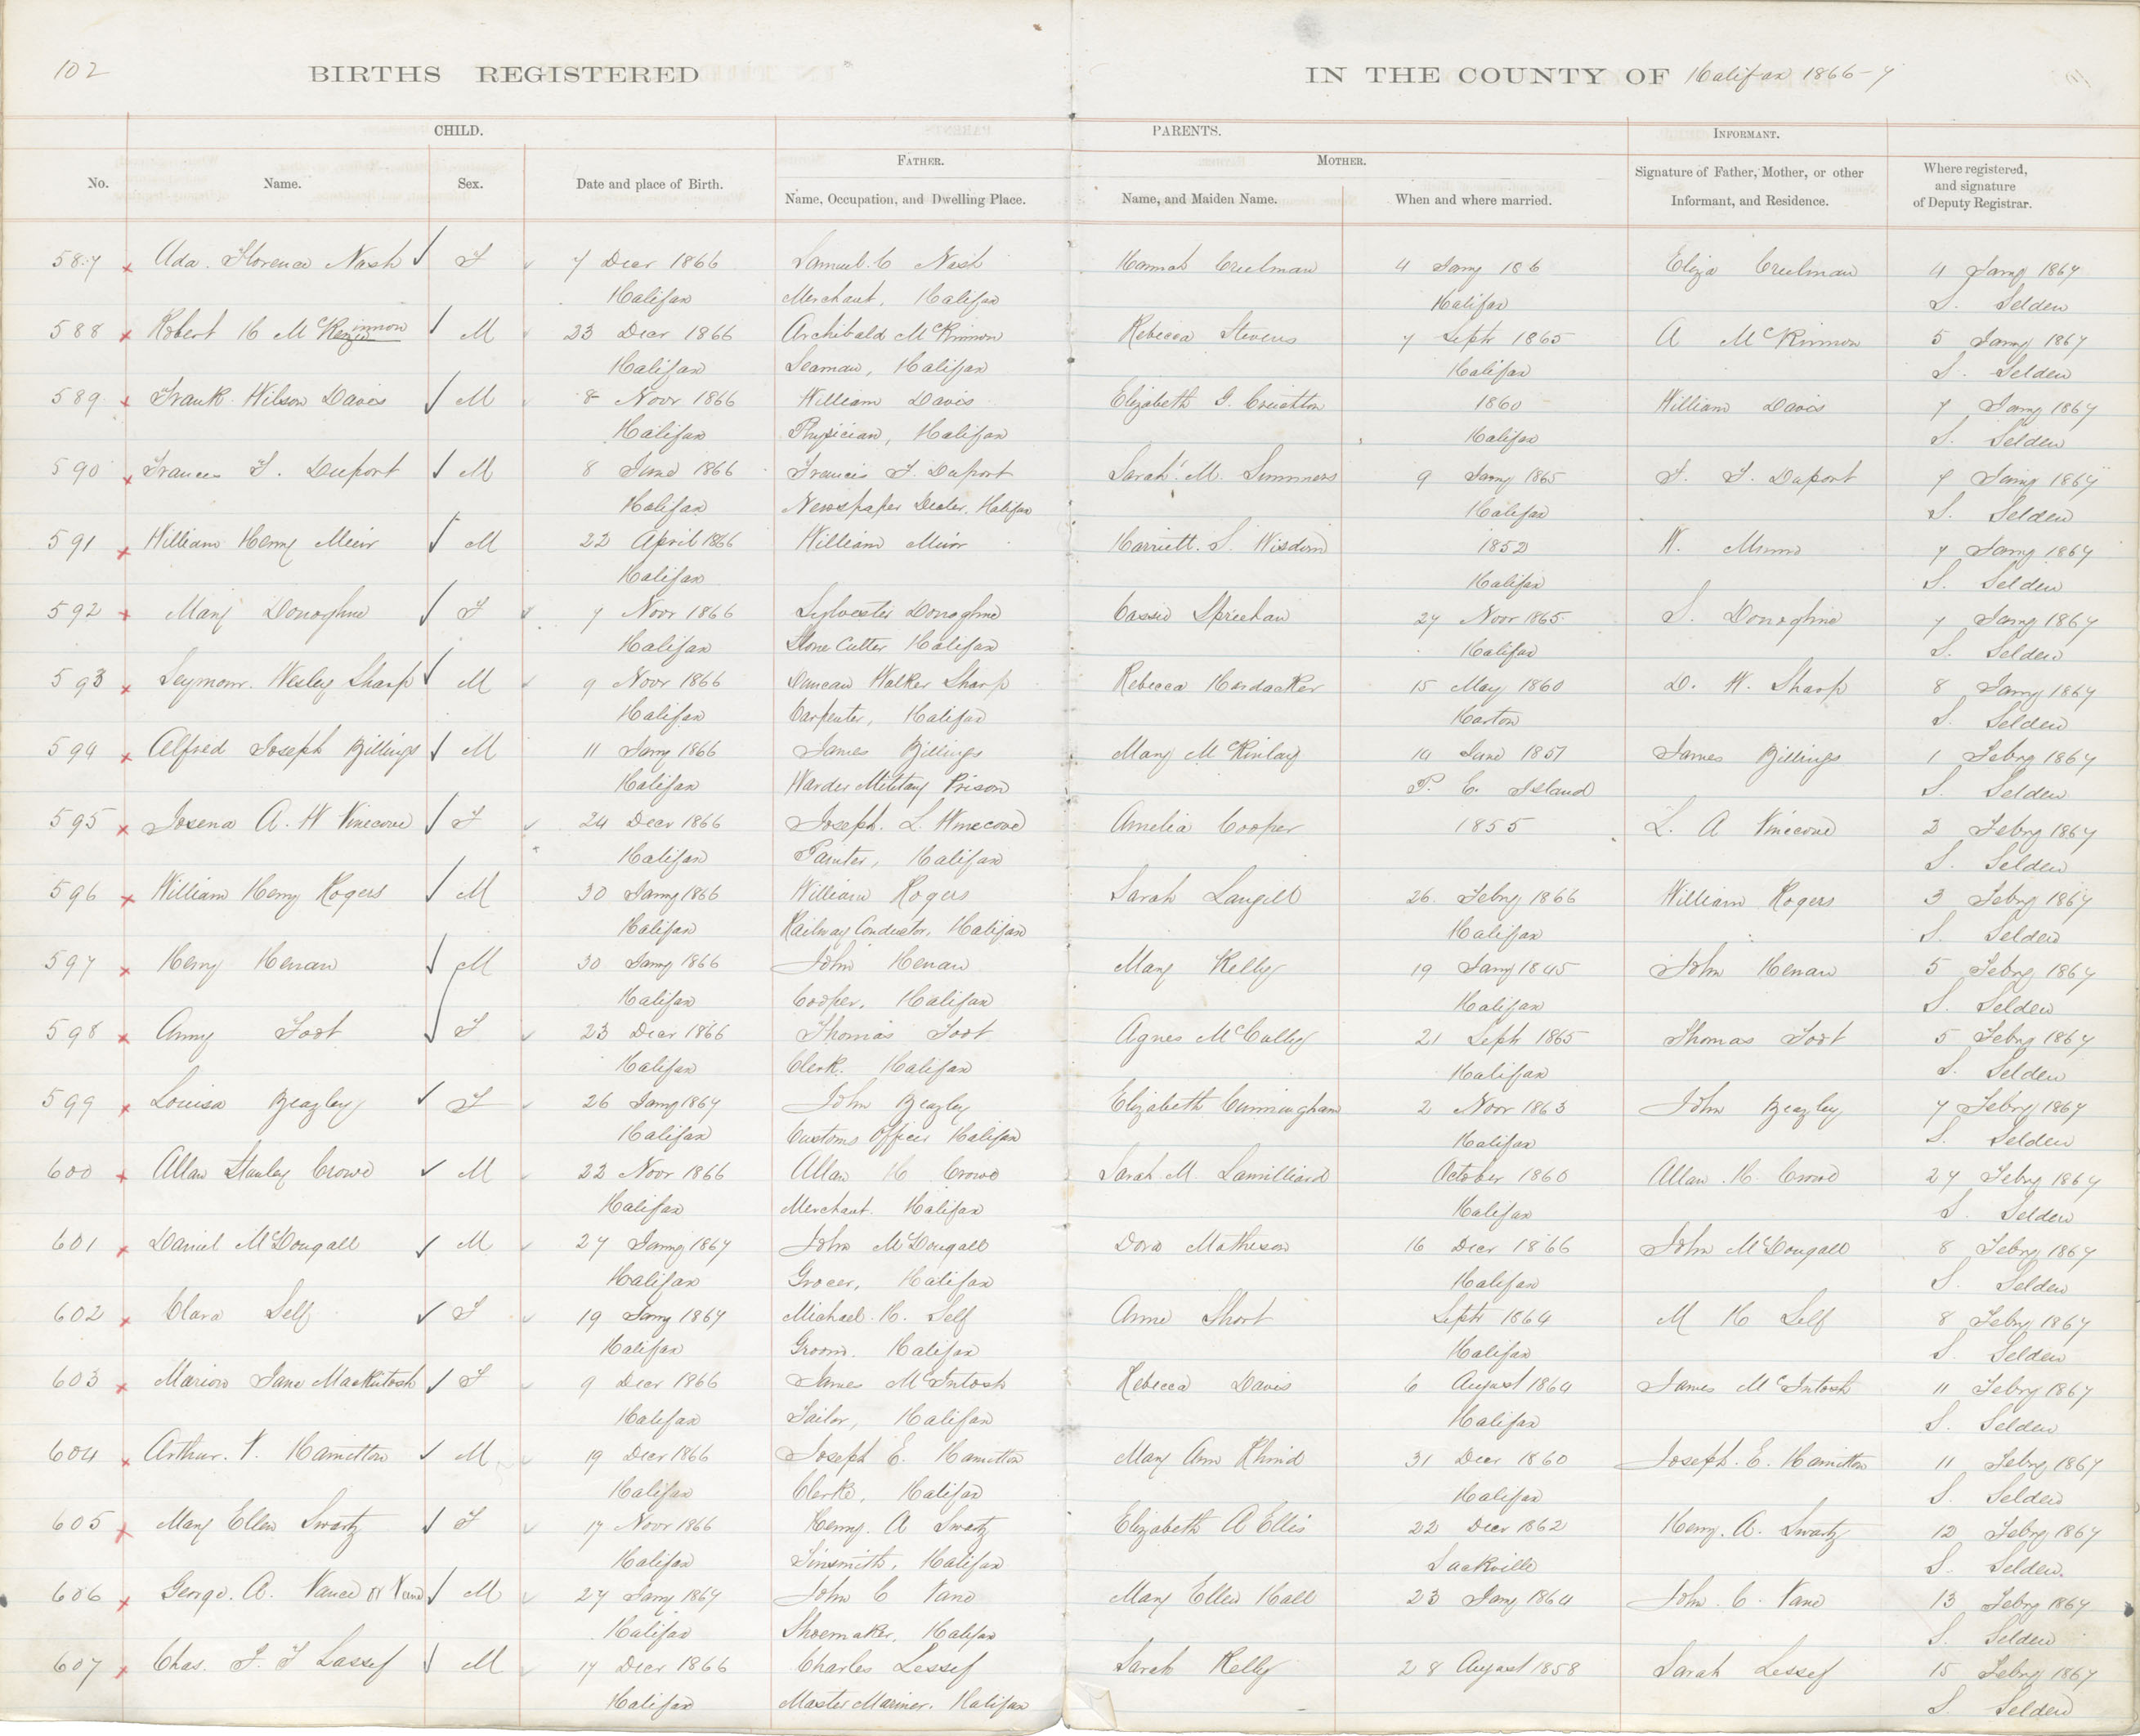 102
BIRTHS REGISTERED IN THE COUNTY OF Halifax 1866-7
CHILD. PARENTS. INFORMANT.
FATHER. MOTHER.
No. Name. Sex. Date and place of Birth. Name, Occupation, and Dwelling Place. Name, and Maiden Name. When and where married. Signature of Father, Mother, or other Informant, and Residence. Where registered, and signature of Deputy Registrar.
587 Ada Florence Nash F 7 Decr 1866 Samuel C Nash Hannah Creelman 4 Jany 186 Eliza Creelman 4 Jany 1867
Halifax Merchant, Halifax Halifax S. Selden
588 Robert H McKenzie innon M 23 Decr 1866 Archibald McKinnon Rebecca Stevens 7 Septr 1865 A McKinnon 5 Jany 1867
Halifax Seaman, Halifax Halifax S. Selden
589 Frank Wilson Davis M 8 Novr 1866 William Davis Elizabeth G. Creighton 1860 William Davis 7 Jany 1867
Halifax Physician, Halifax Halifax S. Selden
590 Frances F. Duport M 8 June 1866 Francis F. Duport Sarah M. Summers 9 Jany 1865 F. F. Duport 7 Jany 1867
Halifax Newspaper Dealer, Halifax Halifax S. Selden
591 William Henry Muir M 22 April 1866 William Muir Harriett S. Wisdom 1852 W. 7 Jany 1867
Halifax Halifax S. Selden
592 Mary Donoghue F 7 Novr 1866 Sylvester Donoghue Cassie 27 Novr 1865 S. Donoghue 7 Jany 1867
Halifax Stone Cutter Halifax Halifax S. Selden
593 Seymour Wesley Sharp M 9 Novr 1866 Duncan Walker Sharp Rebecca Hardacker 15 May 1860 D. W. Sharp 8 Jany 1867
Halifax Carpenter, Halifax Horton S. Selden
594 Alfred Joseph Billings M 11 Jany 1866 James Billings Mary McKinlay 14 June 1857 James Billings 1 Febry 1867
Halifax Warder Military Prison P. E. Island S. Selden
595 Josena A. W Vinecove F 24 Decr 1866 Joseph L. Vinecove Amelia Cooper 1855 L. A Vinecove 2 Febry 1867
Halifax Painter, Halifax S. Selden
596 William Henry Rogers M 30 Jany 1866 William Rogers Sarah Langill 26 Febry 1866 William Rogers 3 Febry 1867
Halifax Railway Conductor, Halifax Halifax S. Selden
597 Henry Henan M 30 Jany 1866 John Henan Mary Kelly 19 Jany 1845 John Henan 5 Febry 1867
Halifax Cooper, Halifax Halifax S. Selden
598 Anny Foot F 23 Decr 1866 Thomas Foot Agnes McCulley 21 Septr 1865 Thomas Foot 5 Febry 1867
Halifax Clerk. Halifax Halifax S. Selden
599 Louisa Beazley F 26 Jany 1867 John Beazley Elizabeth Cunningham 2 Novr 1863 John Beazley 7 Febry 1867
Halifax Customs Officer Halifax Halifax S. Selden
600 Allan Stanley Crowe M 22 Novr 1866 Allan H Crowe Sarah M. Lamilliard October 1860 Allan H. Crowe 27 Febry 1867
Halifax Merchant. Halifax Halifax S. Selden
601 Daniel McDougall M 27 Jany 1867 John McDougall Dora Matheson 16 Decr 1866 John McDougall 8 Febry 1867
Halifax Grocer, Halifax Halifax S. Selden
602 Clara Self F 19 Jany 1867 Michael H. Self Anne Short Septr 1864 M H Self 8 Febry 1867
Halifax Groom. Halifax Halifax S. Selden
603 Marion Jane Mackintosh F 9 Decr 1866 James McIntosh Rebecca Davis 6 August 1864 James McIntosh 11 Febry 1867
Halifax Tailor, Halifax Halifax S. Selden
604 Arthur. V. Hamilton M 19 Decr 1866 Joseph E. Hamilton Mary Ann Rhind 31 Decr 1860 Joseph. E. Hamilton 11 Febry 1867
Halifax Clerk, Halifax Halifax S. Selden
605 Mary Ellen Swartz F 17 Novr 1866 Henry. A Swartz Elizabeth A Ellis 22 Decr 1862 Henry. A. Swartz 12 Febry 1867
Halifax Tinsmith, Halifax Sackville S. Selden.
606 George. A. Vance or Vane M 27 Jany 1867 John C Vane Mary Ellen Hall 23 Jany 1864 John. C. Vane 13 Febry 1867
Halifax Shoemaker, Halifax S. Selden
607 Chas. J. F Lassef M 17 Decr 1866 Charles Lessef Sarah Kelly 28 August 1858 Sarah Lessef 15 Febry 1867
Halifax Master Mariner. Halifax S. Selden